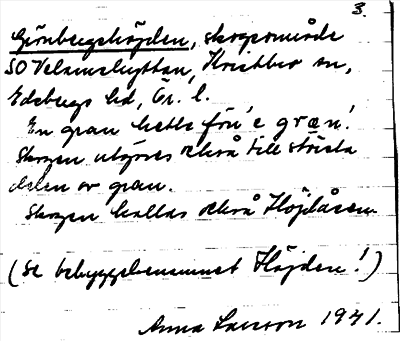 3.
Grönbergshöjden, skogsområde
SO Velamshyttan, Kristbro sn,
Edsbergs hd, Ör. l.
En gran hette fön' e græn'.
Skogen utgöres också till största
delen av gran.
Skogen kallas också Höjdåsen.
(Se bebyggelsenamnet Höjden!)
Anna Larsson 1941.